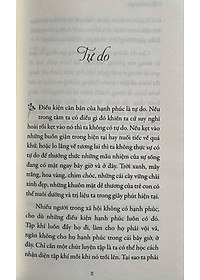 Tự do
Điều kiện căn bản của hạnh phúc là tự do. Nếu
trong tâm ta có điều gì đó khiến ta cứ suy nghĩ
hoài tới nó thì ta không có tự do. Nếu kẹt vào
những buồn giận trong hiện tại hay nuối tiếc về quá
khứ, hoặc lo lắng về tương lai thì ta không thực sự có
tự do để thưởng thức những mầu nhiệm của sự sống
đang có mặt ngay bây giờ và ở đây. Trời xanh, mây
trắng, hoa vàng, chim chóc, những cái cây vững chãi
xinh đẹp, những khuôn mặt dễ thương của trẻ con có
thể nuôi dưỡng và trị liệu ta trong giây phút hiện tại.
Nhiều người trong xã hội không có hạnh phúc,
cho dù những điều kiện hạnh phúc luôn có đó.
Tập khí luôn đẩy họ đi, làm cho họ phải vội vã,
ngăn không cho họ hạnh phúc trong cái bây giờ, ở
đây. Chỉ cần một chút luyện tập là ta có thể học cách
nhận diện tập khí mỗi khi nó trỗi lên. Tại sao ta phải